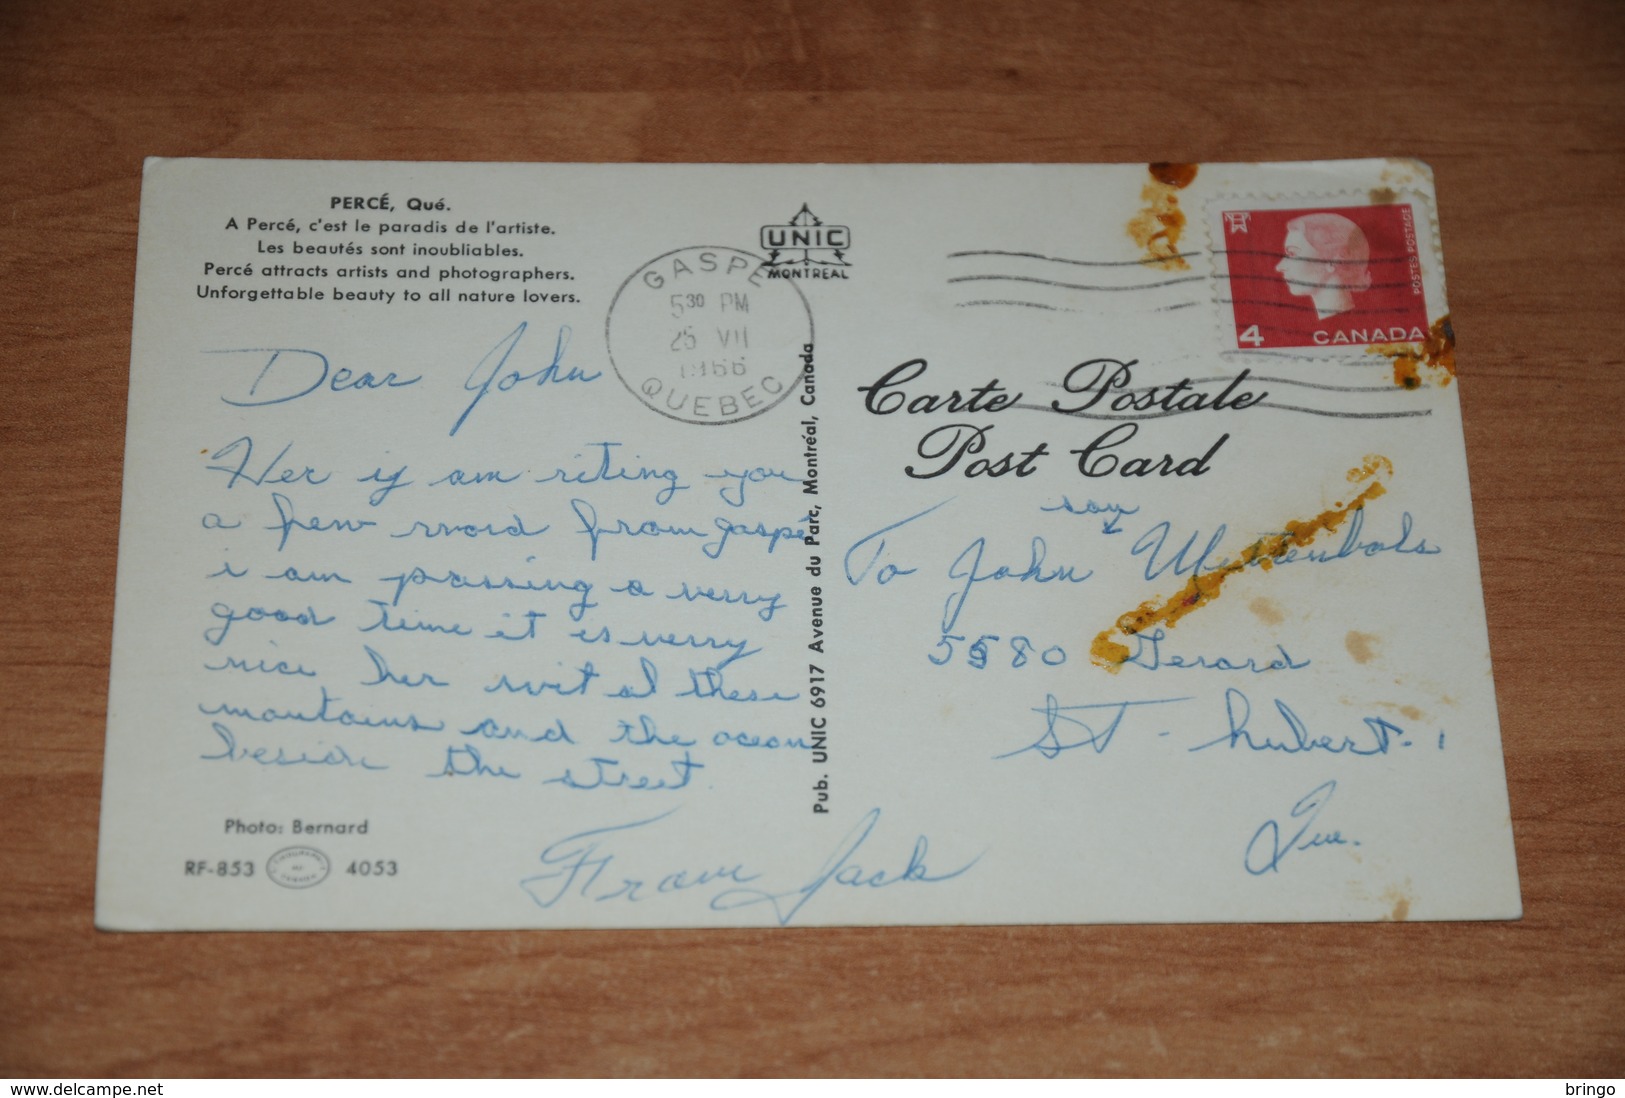 PERCÉ, Qué.
A Percé, c'est le paradis de l'artiste.
Les beautés sont inoubliables.
Percé attracts artists and photographers.
Unforgettable beauty to all nature lovers.
UNIC
MONTREAL
GASPE
5 30 PM
25 VII
1966
QUEBEC
POSTES POSTAGE
4 CANADA
Carte Postale
Post Card
Dear John
Her iy am riting you
a few word from gaspé
i am passing a verry
good time it is verry
nice her wit al these
mountains and the ocean
beside the street.
From Jack
Pub. UNIC 6917 Avenue du Parc, Montréal, Canada
To John
5580 Gerard
ST-hubert.
Que.
Photo: Bernard
RF-853 4053
delcampe.net
bringo